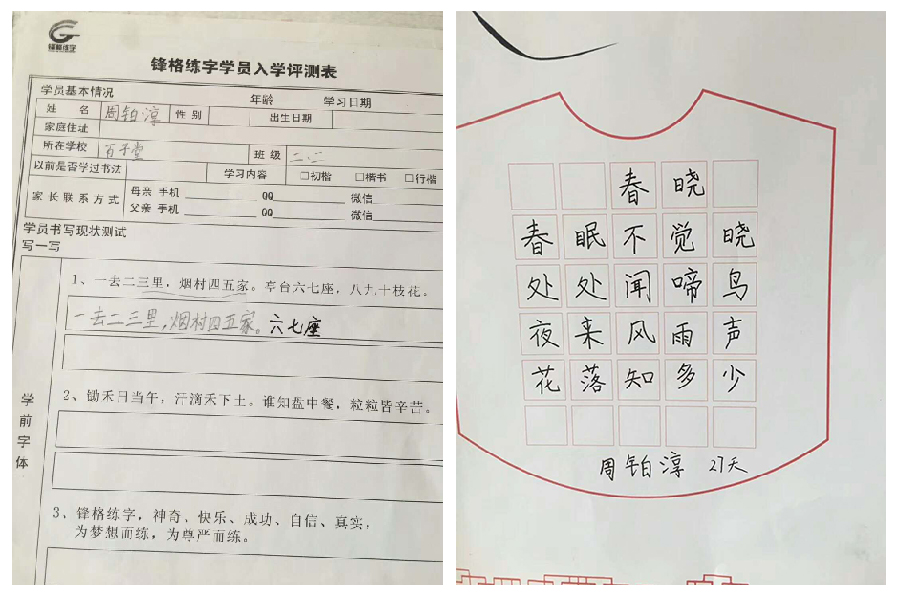 锋格练字
锋格练字学员入学评测表
学员基本情况 年龄 学习日期
姓 名 周铂淳 性 别 出生日期
家庭住址
所在学校 百子堂 班 级 二.二
以前是否学过书法 学习内容 □初楷 □楷书 □行楷
家长联系方式 母亲 手机 QQ 微信
父亲 手机 QQ 微信
学员书写现状测试
写一写
学前字体
1、一去二三里，烟村四五家。亭台六七座，八九十枝花。
一去二三里，烟村四五家。六七座
2、锄禾日当午，汗滴禾下土。谁知盘中餐，粒粒皆辛苦。
3、锋格练字，神奇、快乐、成功、自信、真实，
为梦想而练，为尊严而练。
春晓
春眠不觉晓
处处闻啼鸟
夜来风雨声
花落知多少
周铂淳 27天